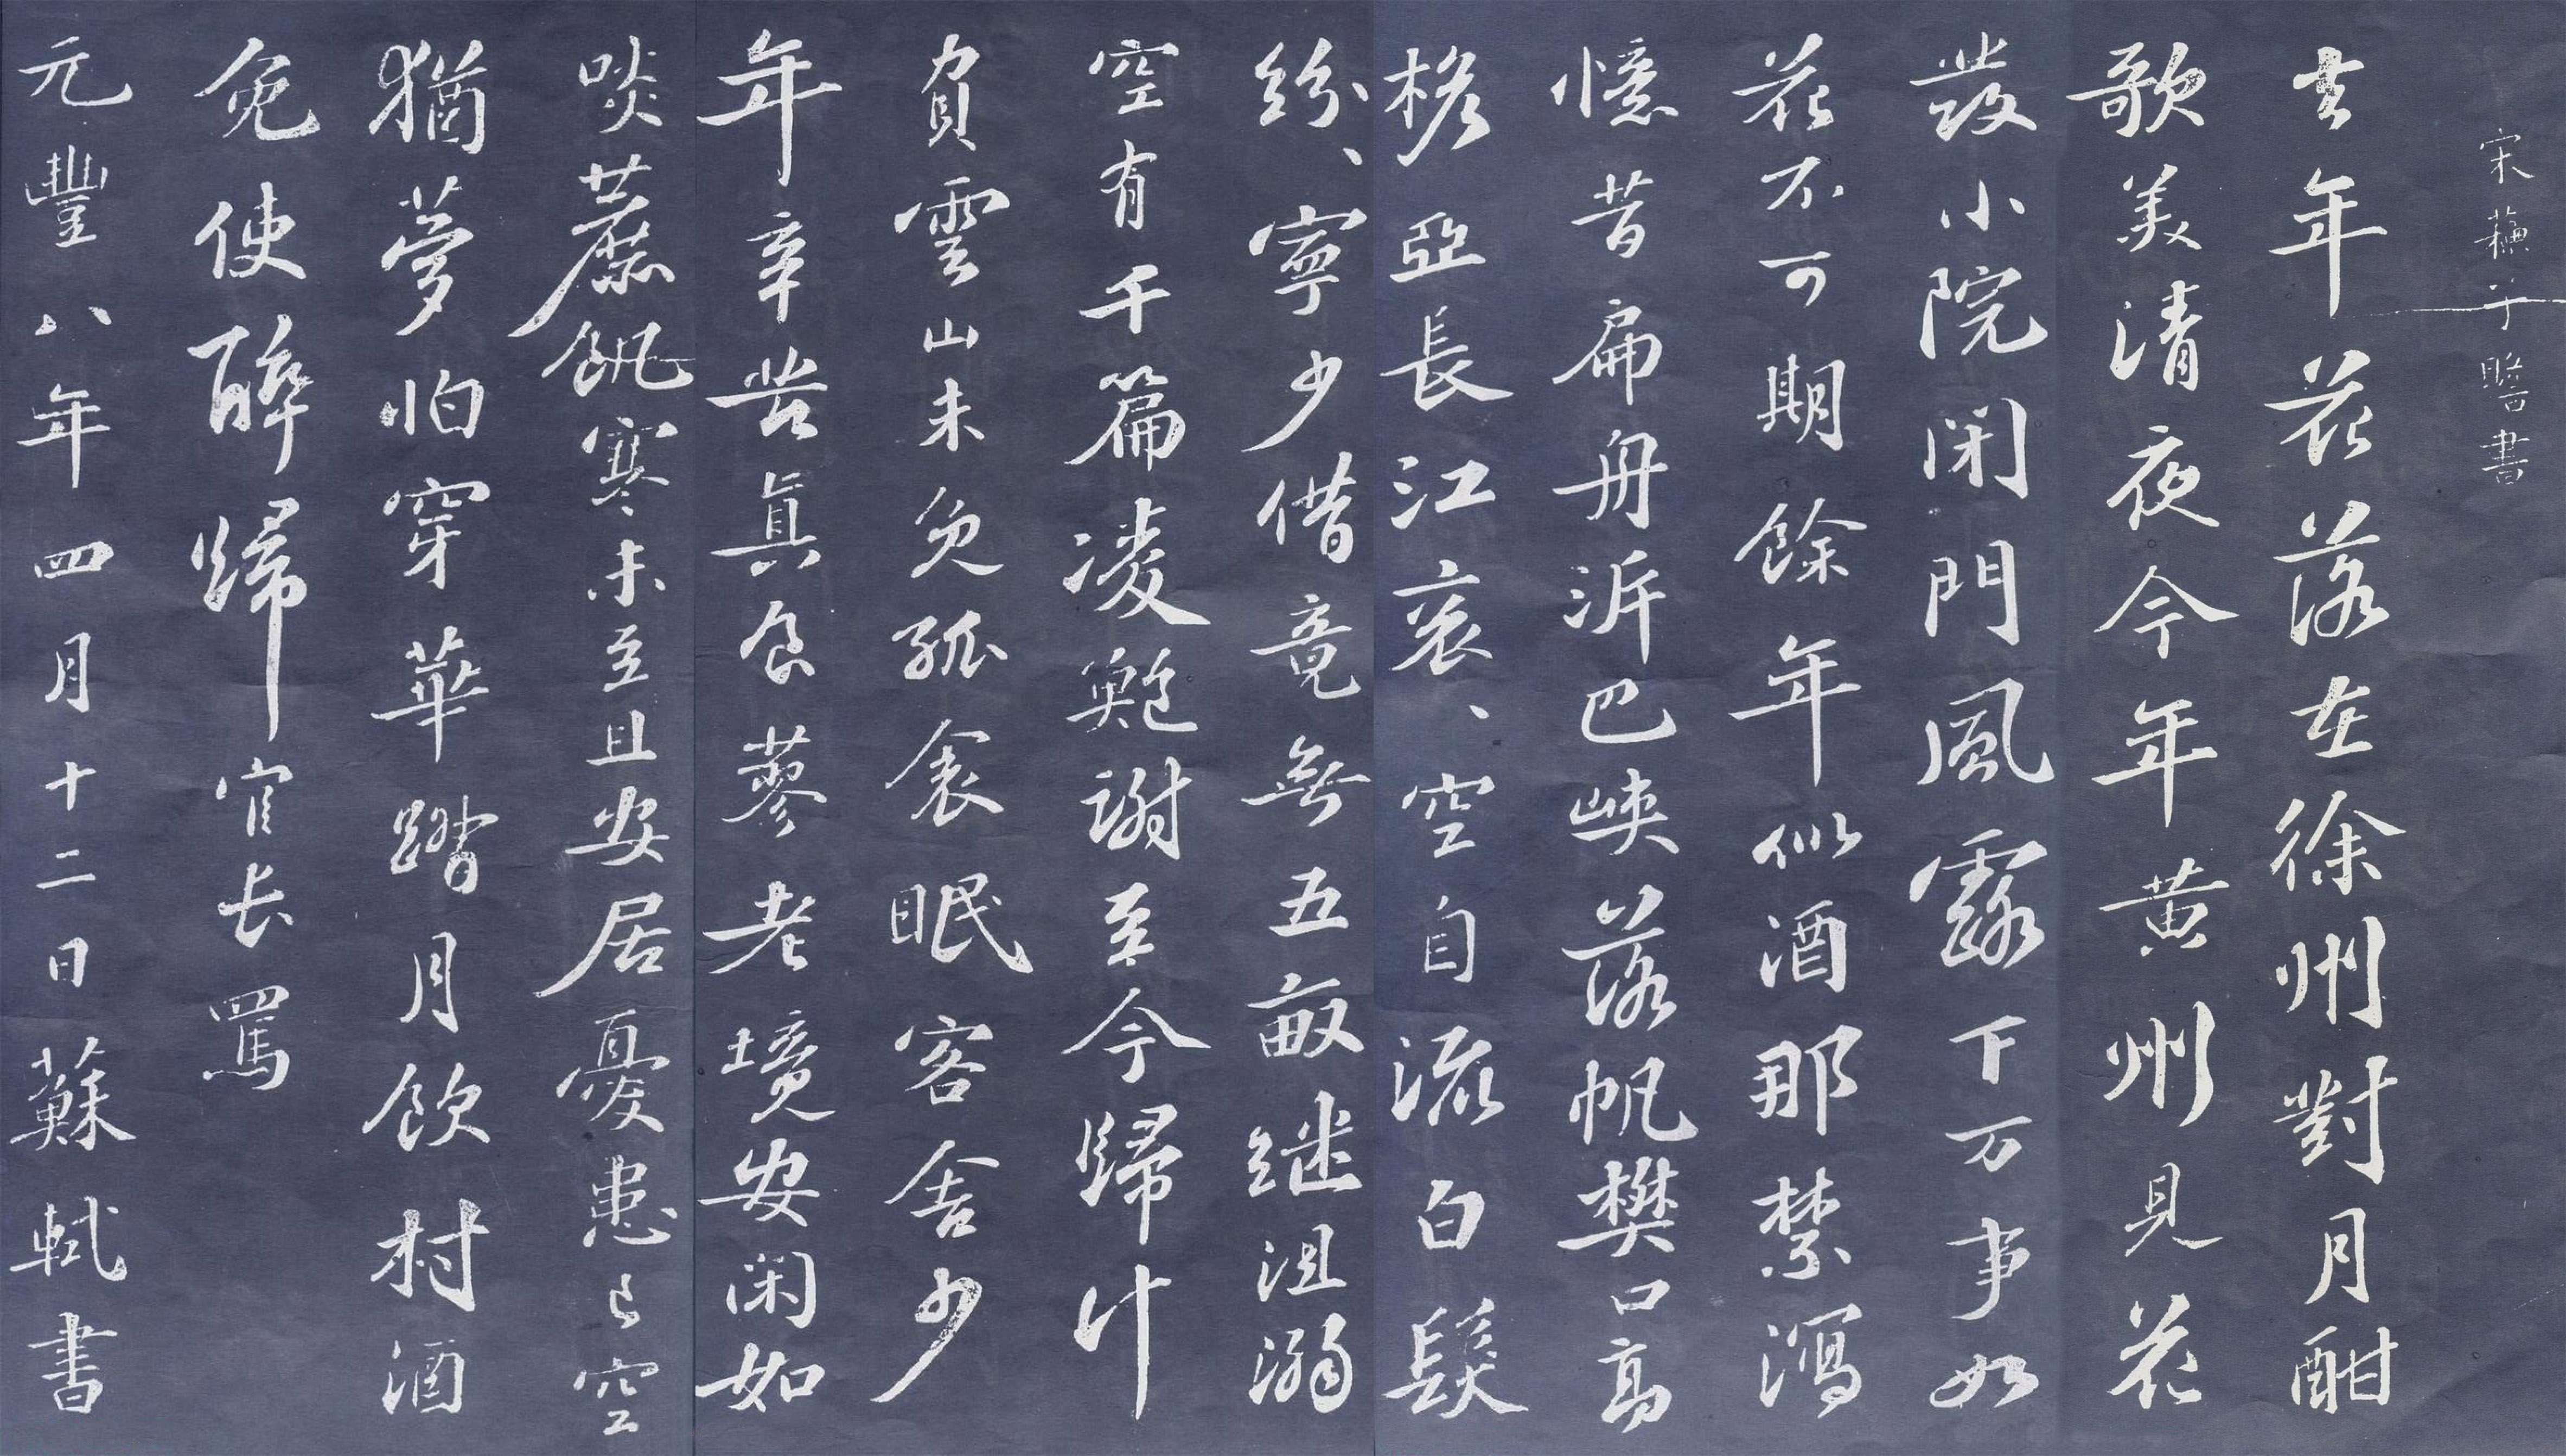 宋蘓子瞻書
去年花落在徐州對月酣
歌美清夜今年黄州見花
發小院閉門風露下万事如
花不可期餘年似酒那禁瀉
憶昔扁舟泝巴峽落帆樊口高
桅亞長江衮、空自流白髮
紛、寧少借竟無五畝继沮溺
空有千篇凌鮑謝至今歸计
負雲山未免孤衾眠客舍少
年辛苦真食蓼老境安閑如
啖蔗飢寒未至且安居憂患已空
猶夢怕穿華踏月飲村酒
免使醉歸官长罵
元豐八年四月十二日蘇軾書